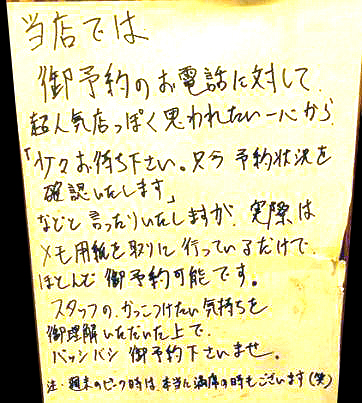 当店では
御予約のお電話に対して
超人気店っぽく思われたい一心から
「少々お待ち下さい。只今予約状況を
確認いたします」
などと言ったりいたしますが、実際は
メモ用紙を取りに行っているだけで
ほとんど御予約可能です。
スタッフの、かっこつけたい気持ちを
御理解いただいた上で
バッシバシ御予約下さいませ。
注・週末のピーク時は、本当に満席の時もございます(笑)